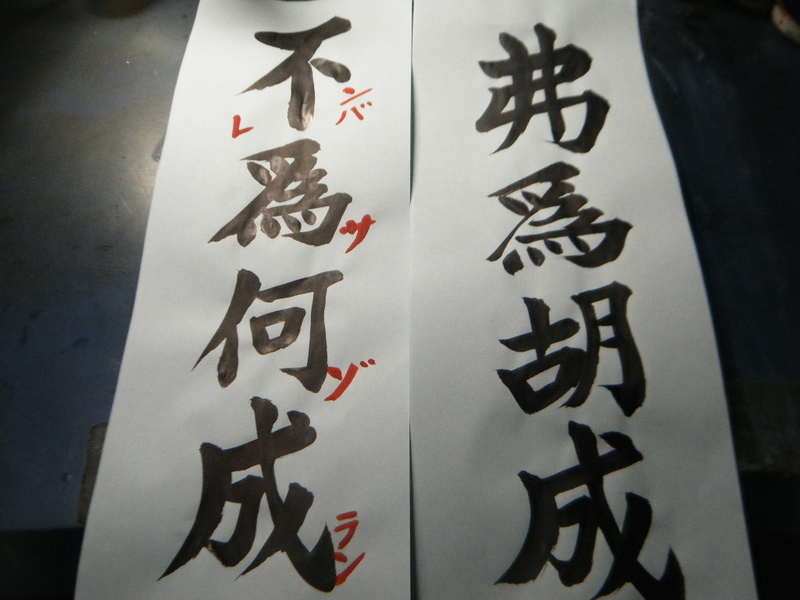 弗爲胡成
不爲何成
ンバ
レ
サ
ゾ
ラン